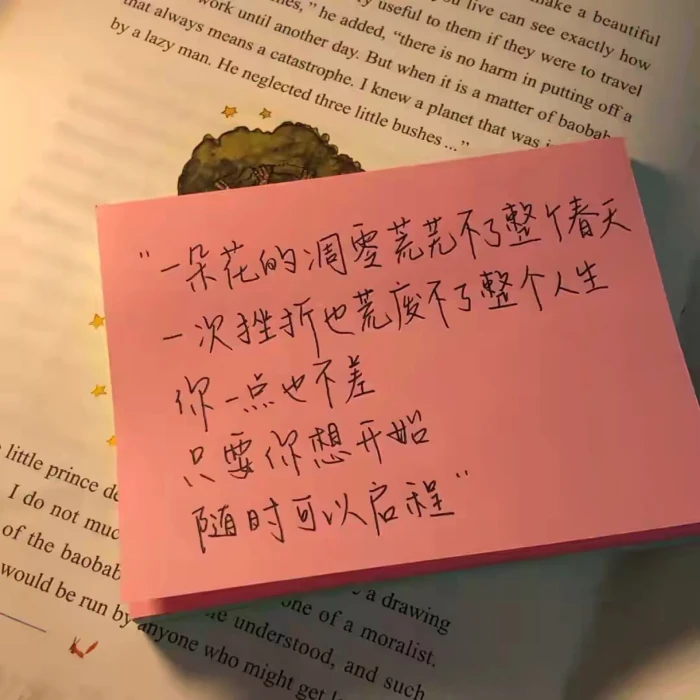 make a beautiful
you live can see exactly how
," he added, "there is no harm in putting off a
useful to them if they were to travel
work until another day. But when it is a matter of baobab
that always means a catastrophe. I knew a planet that was
by a lazy man. He neglected three little bushes..."
"一朵花的凋零荒芜不了整个春天
一次挫折也荒废不了整个人生
你一点也不差
只要你想开始
随时可以启程"
little prince
I do not
of the baobab
would be run by anyone who might get
a drawing
one of a moralist.
understood, and such